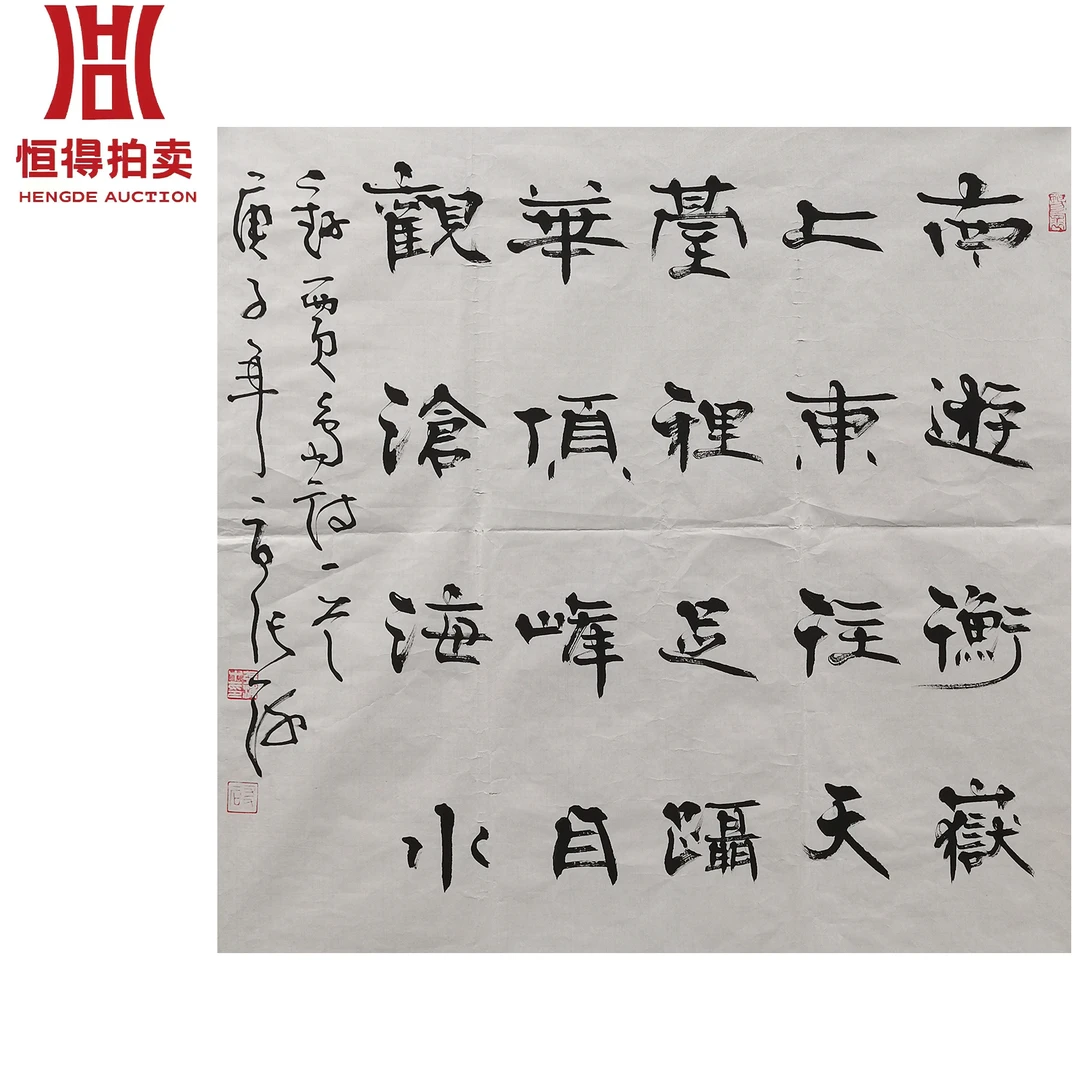 恒得拍卖
HENGDE AUCTION
南遊衡嶽
上東往天
臺裡足躡
華頂峰自
觀滄海水
錄賈島詩一首
庚子年